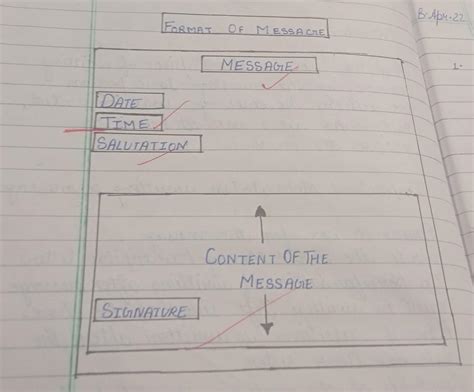 FORMAT OF MESSAGE
8-Apr-22
1.
MESSAGE
DATE
TIME
SALUTATION
CONTENT OF THE
MESSAGE
SIGNATURE